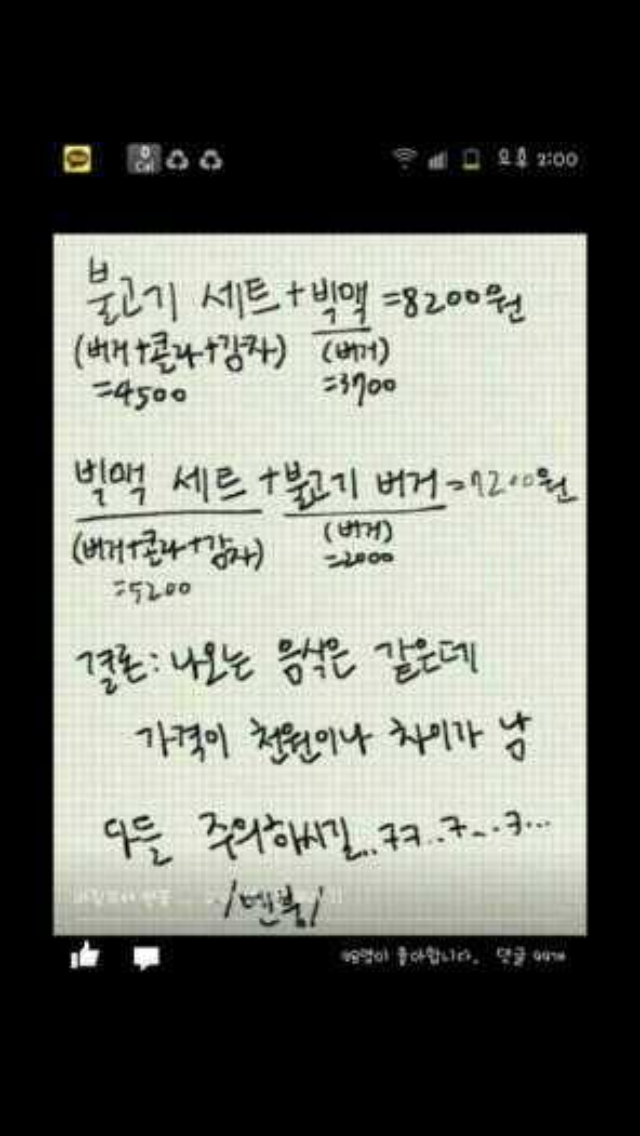 0
Cal
오후 2:00
불고기 세트 + 빅맥 = 8200원
(버거+콜라+감자) (버거)
=4500 =3700
빅맥 세트 + 불고기 버거 = 7200원
(버거+콜라+감자) (버거)
=5200 =2000
결론: 나오는 음식은 같은데
가격이 천원이나 차이가 남
다들 주의하시길..ㅋㅋ..ㅋ...ㅋ...
/멘붕/
98명이 좋아합니다. 댓글